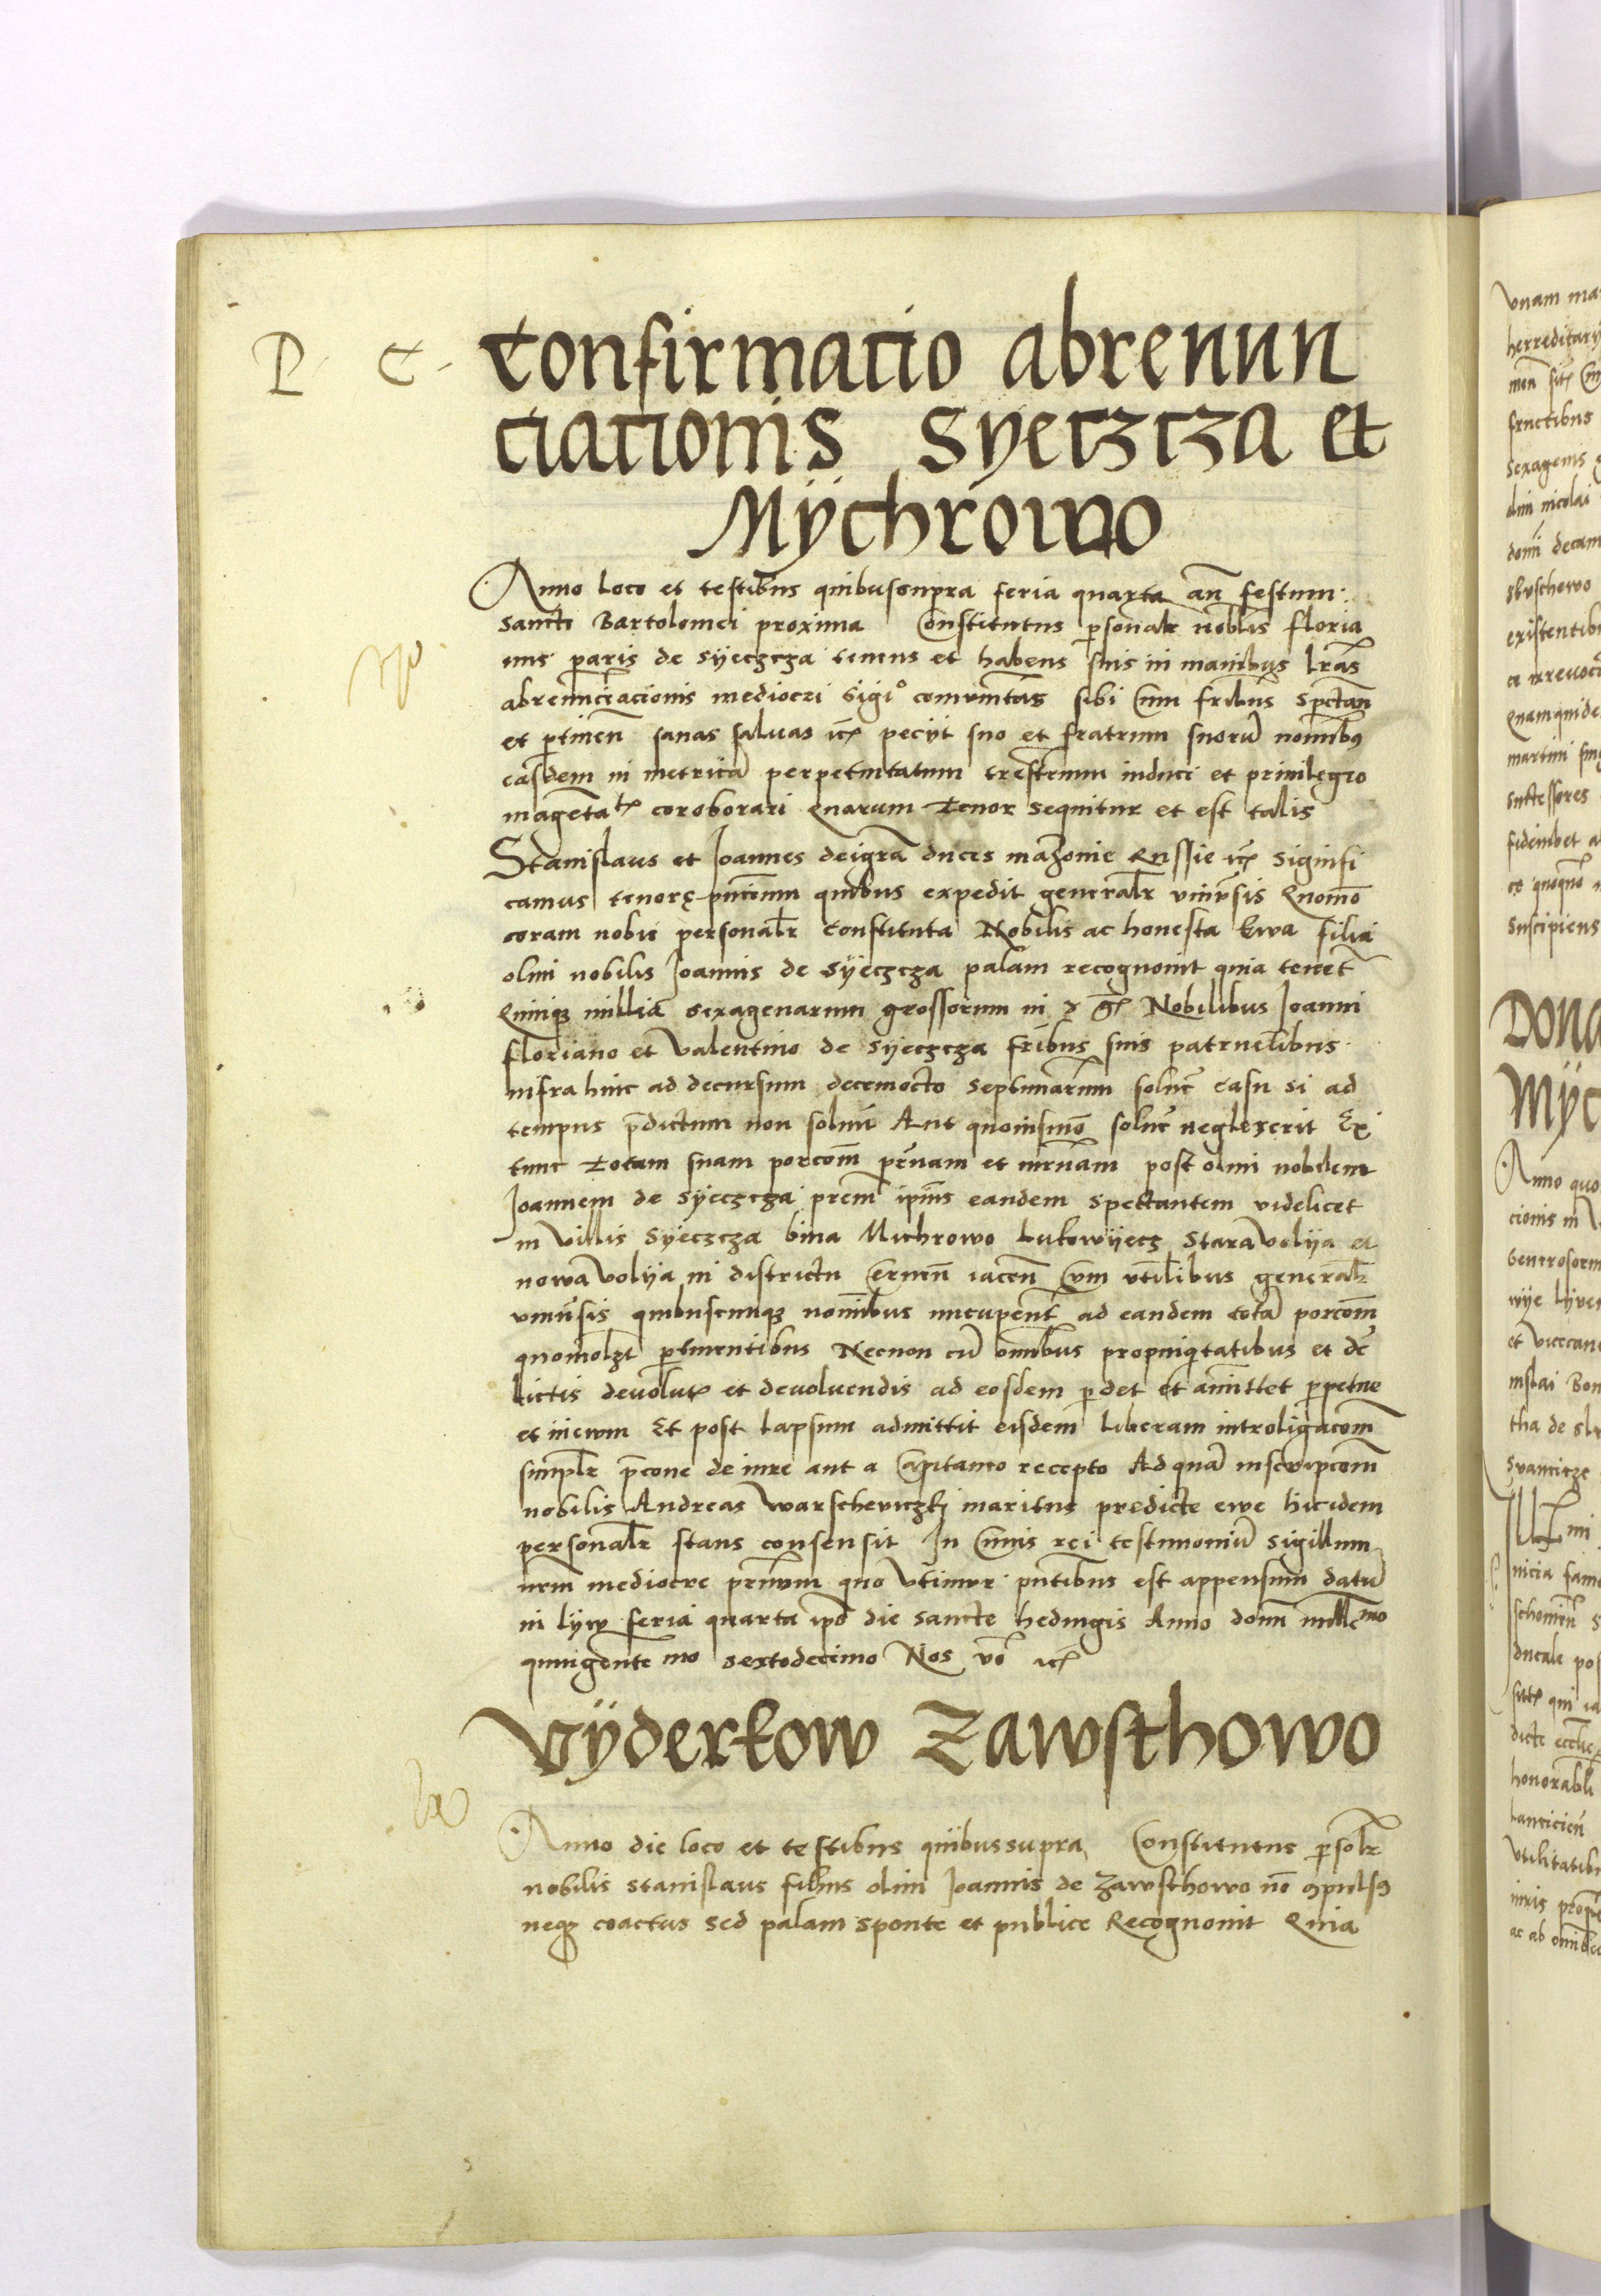 P. C. Confirmacio abrenun
ciacionis Syeczcza et
Mÿchrowo
Anno loco et testibus quibus supra feria quarta an̄ festum
sancti Bartolomei proxima Constitutus p̄sonalr nobl̄is floria
nus paris de Syeczcza tenens et habens suis in manibus lr̄as
abrenuncciacionis mediocri sigi° comunitas sibi cum frībus spectan̄
et ptinen̄ sanas saluas ꝛc̄ peciit suo et fratrum suorū nominibꝰ
easdem in metricā perpetuitatum terrestrium induci et priuilegio
coroborari Quarum Tenor sequitur et est talis
Stanislaus et Joannes deigrā duces mazouie Russie ꝛc̄ signifi
camus tenore pn̄cium quibus expedit generalr̄ vniuersis Quomo
coram nobis personalr̄ constituta Nobilis ac honesta Ewa filia
olim nobilis Joannis de Syeczcza palam recognouit quia tenet̄
Quinqꝫ millia sexagenarum grossorum in Nobilibus Joanni
floriano et Valentino de Syeczcza frībus suis patruelibus
infra hinc ad decursum decemocto septimarum solue͛ casu si ad
tempus p̄dictum non soluit Aut quouismō solue͛ neglexerit Ex
tunc Totam suam porcōm pr̄nam et mr̄nam post olim nobilem
Joannem de Syeczcza prēm ipīus eandem spectantem videlicet
in Villis Syeczcza bina Michrowo Lukowyecz Stara volÿa et
nowa volÿa in districtu Cernen̄ iacen̄ Cum vtilibus generalr̄
vniu͛sis quibuscumqꝫ nominibus nuncupent̄ ad eandem totā porcōm
quomolꝫt ptinentibus Necnon cū omībus propinquitatibus et de͛
lictis deuolut̄ et deuoluendis ad eosdem p̄det et amittet p̄petue
et in ewm Et post lapsum admittit eisdem liberam introligacōm
simplr̄ p̄cone de iure aut a Capitaneo recepto Ad quā inscripcōm
nobilis Andreas Warscheviczkÿ maritus predicte ewe hic idem
personalr̄ stans consensit In Cuius rei testimoniū sigillum
nrm̄ mediocre quo vtimur pn̄tibus est appensum datū
in lÿw feria quarta ipō die sancte hedvigis Anno domī mille mo
quingente mo sextodecimo Nos vō ꝛc̄
Vÿderkow Zawsthowo
Anno die loco et testibus quibus supra Constitutus p̄solr̄
nobilis stanislaus filius olim Joannis de zawsthowo nō ꝯpulsꝰ
neqꝫ coactus sed palam sponte et publice Recognouit Quia
vnam mar
fructibus
sexagenis
olim nicolai
slvschewo
existentibu
martini
successores
suscipiens
Dona
Mÿc
Anno quo
cionis in V
Generosorm
et vicecan
tha de
dicte
honorabli
Vtilitatib